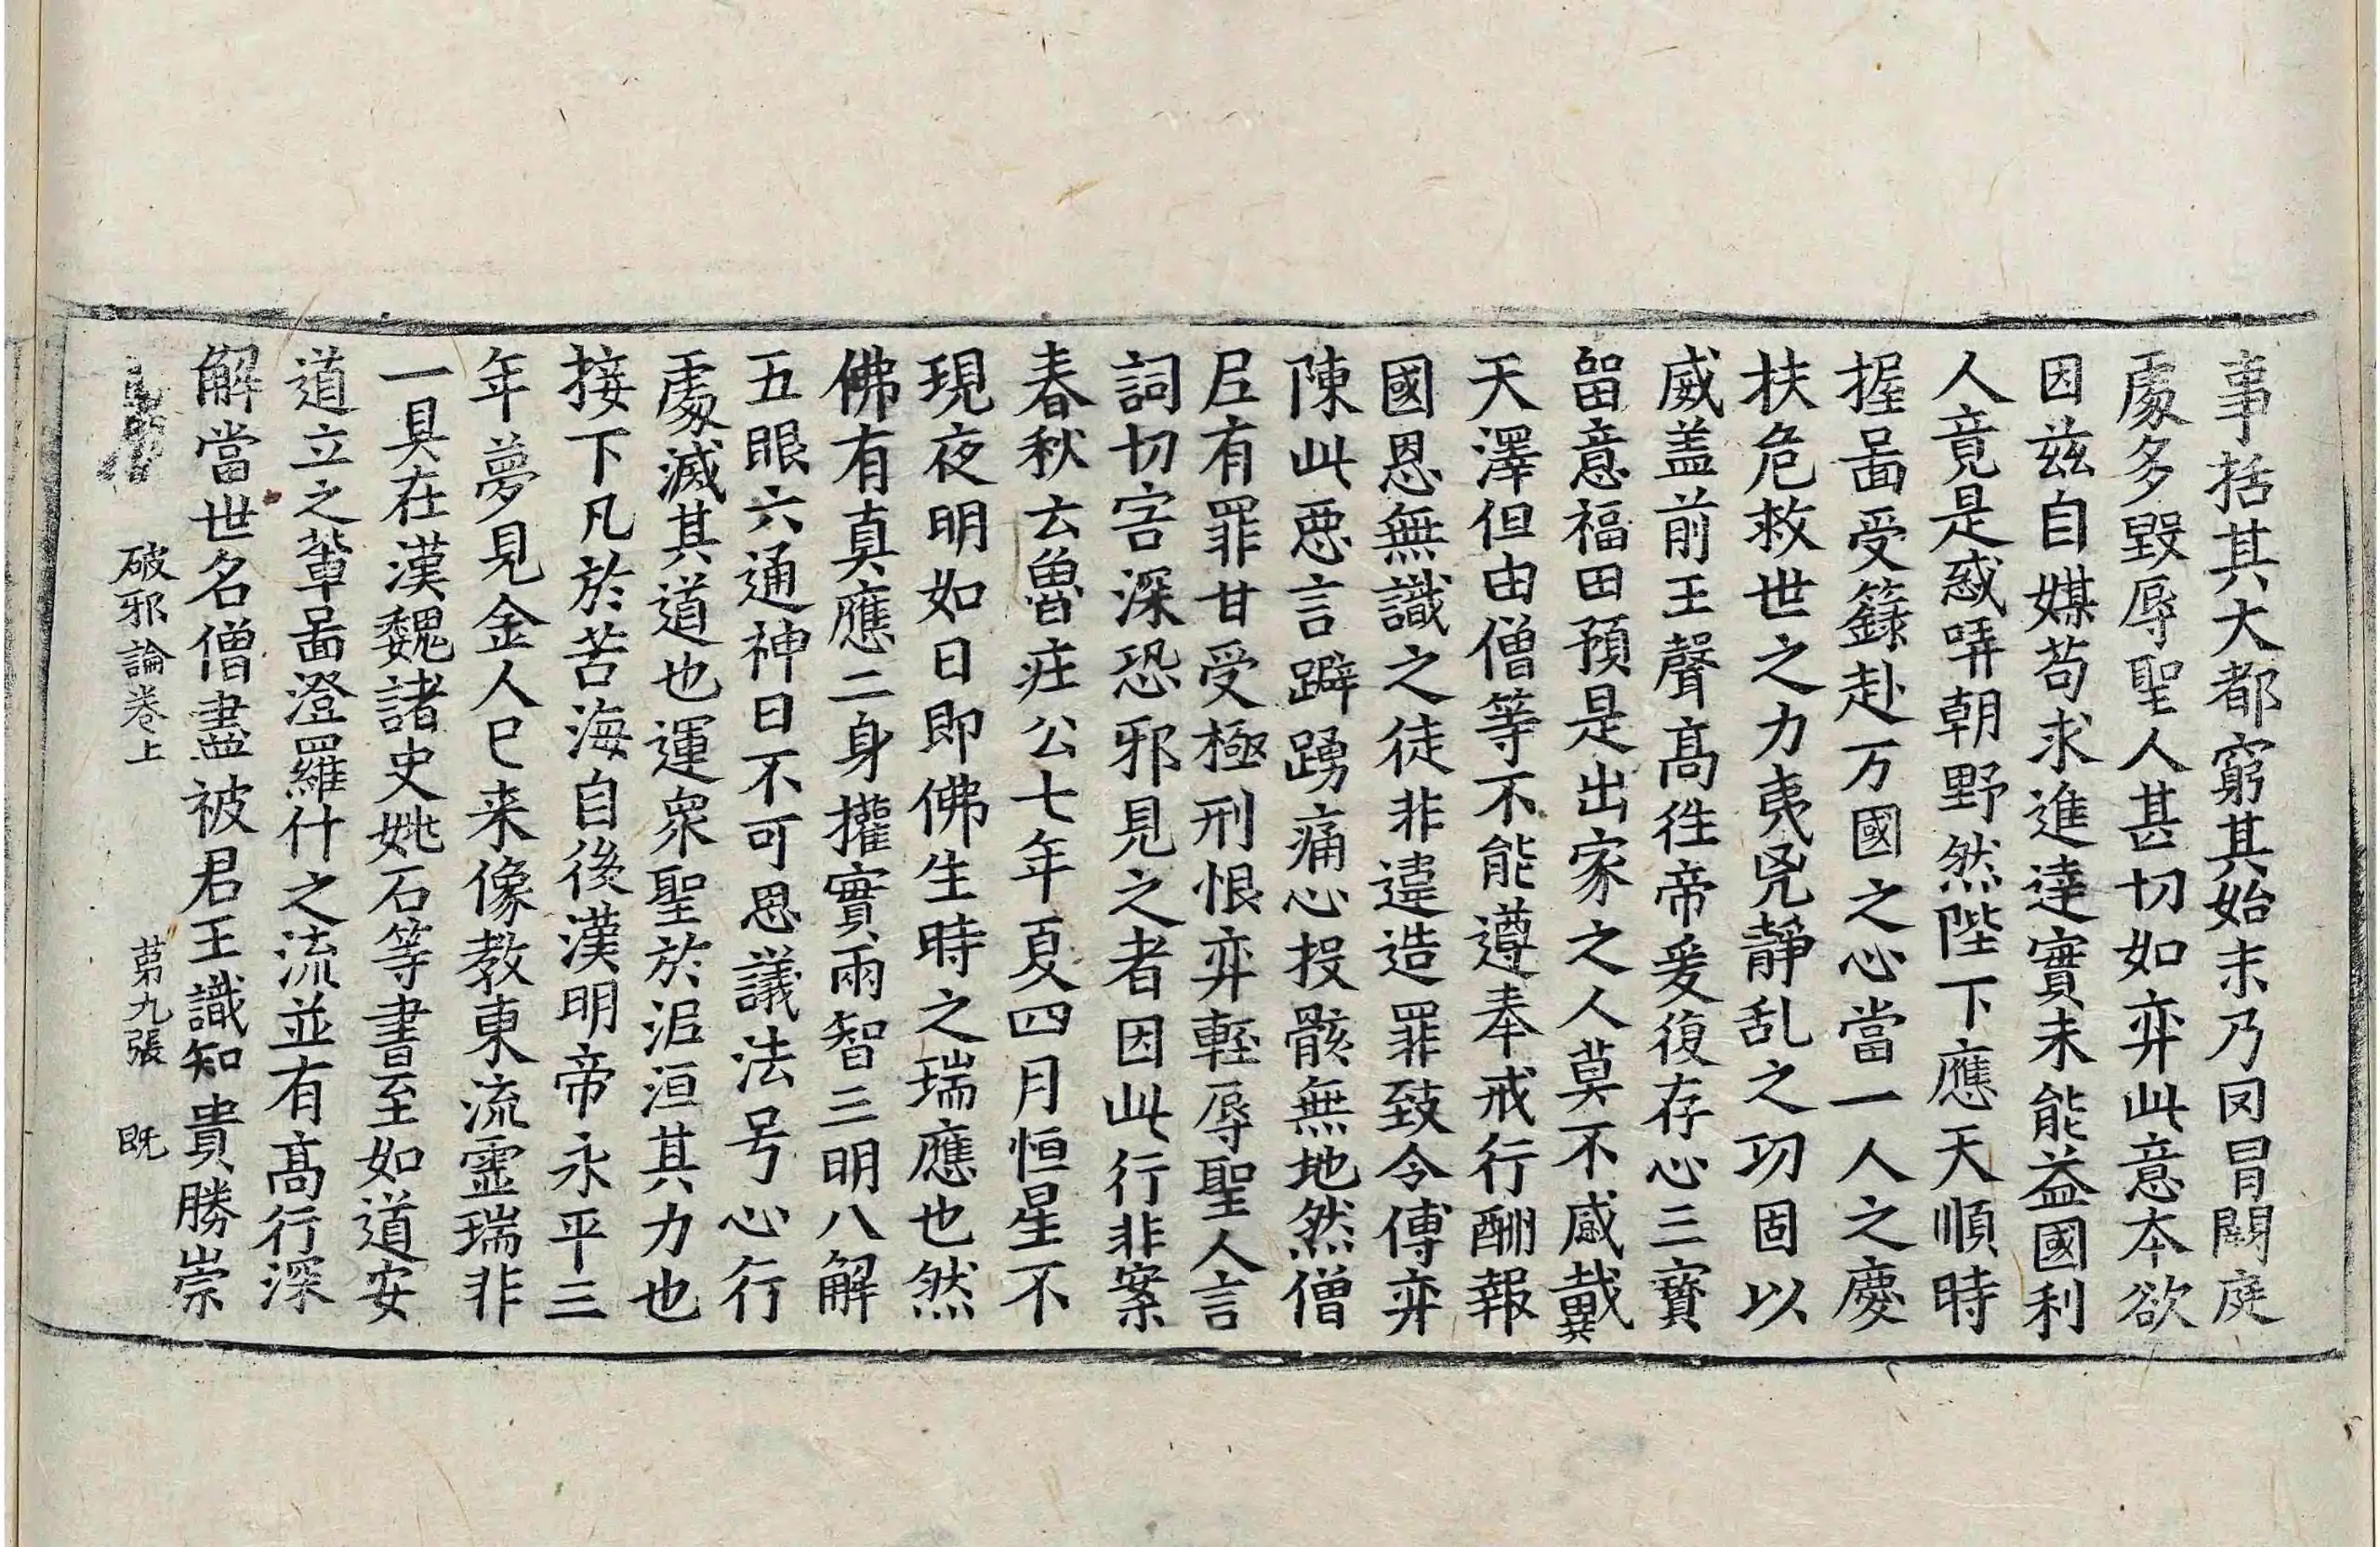 事括其大都窮其始末乃罔冒闕庭
處多毀辱聖人甚切如弈此意本欲
因茲自媒苟求進達實未能益國利
人竟是惑哢朝野然陛下應天順時
握啚受籙赴万國之心當一人之慶
扶危救世之力夷兇靜乱之功固以
威盖前王聲髙徃帝爰復存心三寶
留意福田預是出家之人莫不感戴
天澤但由僧等不能遵奉戒行酬報
國恩無識之徒非違造罪致令傅弈
陳此惡言躃踴痛心投骸無地然僧
尼有罪甘受極刑恨弈輕辱聖人言
詞切害深恐邪見之者因此行非案
春秋云魯莊公七年夏四月恒星不
現夜明如日即佛生時之瑞應也然
佛有真應二身攉實兩智三明八解
五眼六通神曰不可思議法号心行
處滅其道也運衆聖於泥洹其力也
接下凡於苦海自後漢明帝永平三
年夢見金人已来像教東流靈瑞非
一具在漢魏諸史姚石等書至如道安
道立之輩啚澄羅什之流並有髙行深
解當世名僧盡被君王識知貴勝崇
破邪論卷上 苐九張 旣